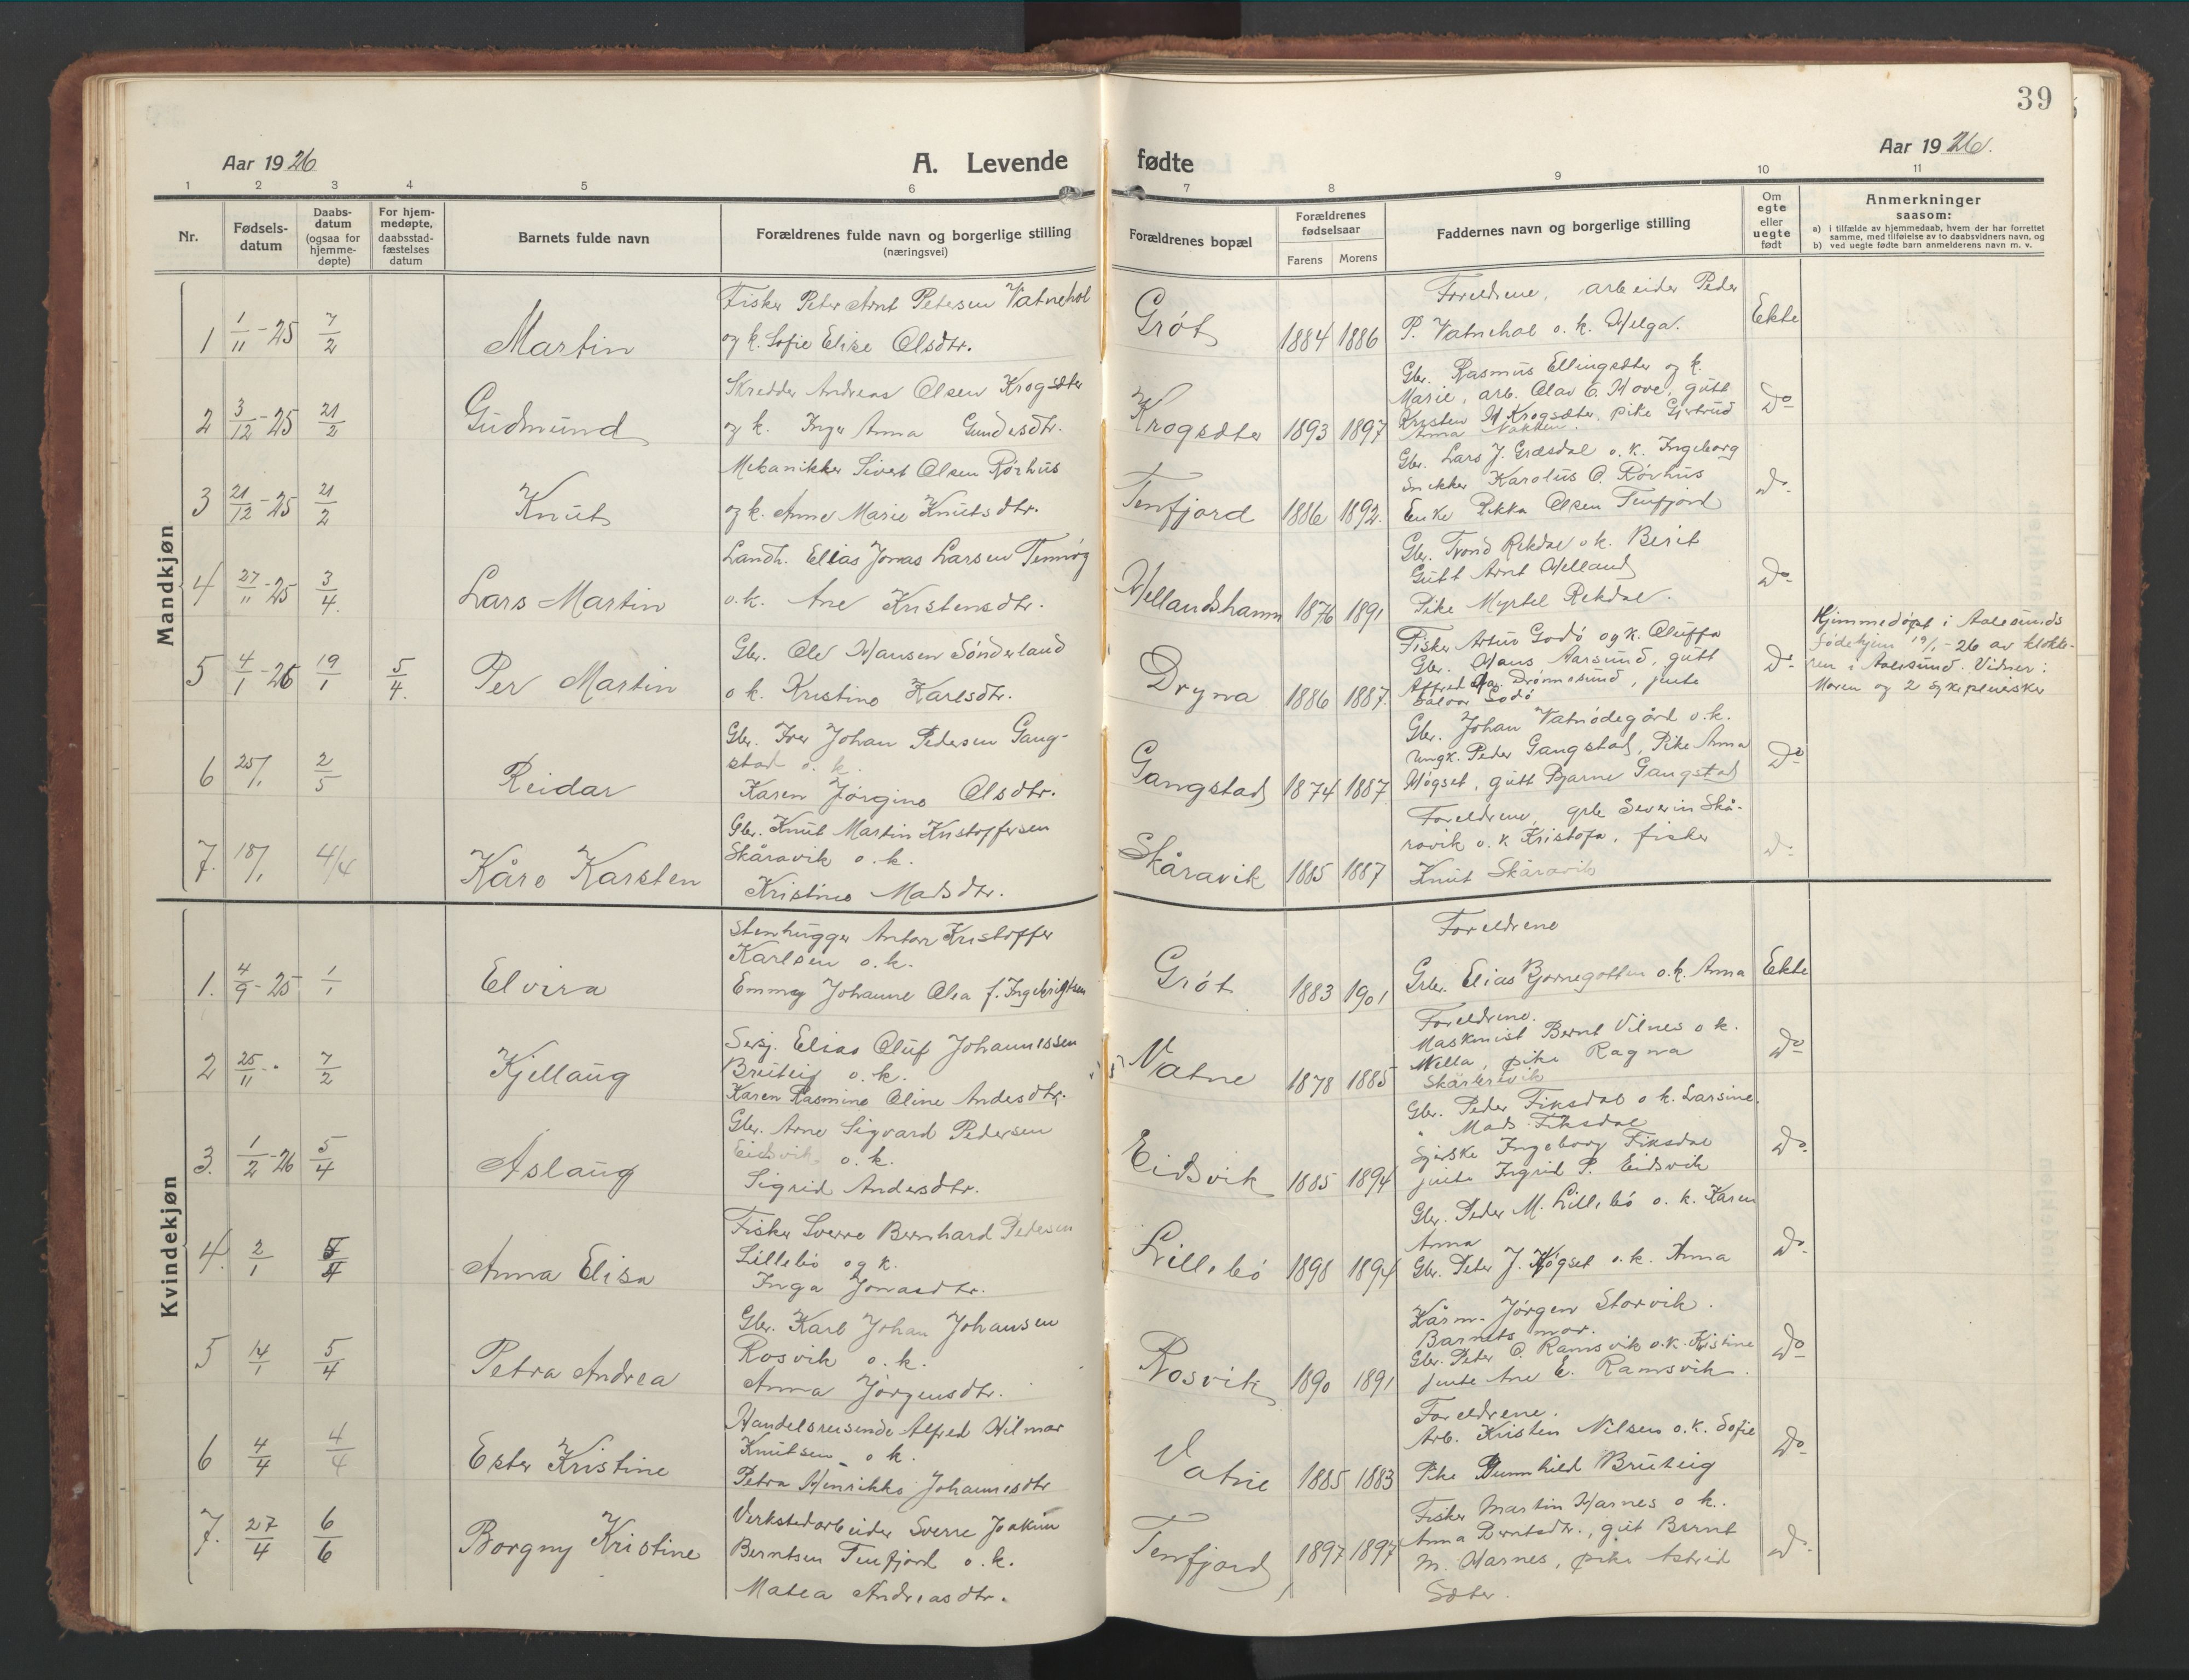 39
Aar 1926
A. Levende
fødte
Aar 1926.
1 2 3 4 5 6 7 8 9 10 11
Nr.
Fødsels-
datum
Daabs-
datum
(ogsaa for
hjemme-
døpte)
For hjem-
medøpte,
daabsstad-
fæstelses
datum
Barnets fulde navn
Forældrenes fulde navn og borgerlige stilling
(næringsvei)
Forældrenes bopæl
Forældrenes
fødselsaar
Farens Morens
Faddernes navn og borgerlige stilling
Om
egte
eller
uegte
født
Anmerkninger
saasom:
a) i tilfælde av hjemmedaab, hvem der har forrettet
samme, med tilføielse av to daabsvidners navn, og
b) ved uegte fødte barn anmelderens navn m. v.
Mandkjøn
1 1/11-25 7/2 Martin
Fisker Peter Arnt Petersen Vatnehol
og k. Sofie Elise Olsdtr.
Grøt 1884 1886
Foreldrene, arbeider Peder
P. Vatnehol o. k. Helga.
Ekte
2 3/12-25 21/2 Gudmund
Skredder Andreas Olsen Krogsæter
og k. Inger Anna Gundesdtr.
Krogsæter 1893 1897
Gbr. Rasmus Ellingsæter og k.
Marie, arb. Olav E. Hove, gutt
Kristen M Krogsæter, pike Gjertrud
Anna
Do
3 21/12-25 21/2 Knut
Mekanikker Sivert Olsen Rørhus
og k. Anne Marie Knutsdtr.
Tenfjord 1886 1892.
Gbr. Lars J. Græsdal o. k. Ingeborg
Snekker Karolus O. Rørhus
Enke Rikka Olsen Tenfjord
do.
4 27/11-25 3/4. Lars Martin
Landh. Elias Jonas Larsen Tennøy
o. k. Ane Kristensdtr.
Hellandshamn 1876 1891
Gbr. Trond Rekdal o k. Berit
Gutt Arnt Helland
Pike Myrtel Rekdal.
Do
5 4/1-26 19/1 5/4. Per Martin
Gbr. Ole Hansen Sønderland
o k. Kristine Karlsdtr.
Dryna 1886 1887.
Fisker Artur Godø og k. Oluffa
Gbr. Hans Aarsund, gutt
Alfred Drønnesund, jente
Godø
Do
Hjemmedøpt i Aalesunds
Fødehjem 19/1-26 av klokke-
ren i Aalesund. Vidner:
Moren og 2 sykepleiersker
6 25/1 2/5 Reidar
Gbr. Iver Johan Pedersen Gang-
stad o. k.
Karen Jørgine Olsdtr.
Gangstad 1874 1887
Gbr. Johan Vatnødegård o. k.
Ungk. Peder Gangstad, Pike Anna
Høgset, gutt Bjarne Gangstad
Do
7. 18/1 4/4 Kåre Karsten
Gbr. Knut Martin Kristoffersen
Skåravik o. k.
Kristine Madsdtr.
Skåravik 1885 1887
Foreldrene, grb Severin Skå-
ravik o. k Kristofa, fisker
Knut Skåravik
do
Kvindekjøn
1. 4/9-25 1/1 Elvira
Stenhugger Anton Kristoffer
Karlsen o. k.
Emmy Johanne Olea f. Ingebrigtsen
Grøt 1883 1901
Foreldrene
Grbr. Elias Bjørnegotten o. k. Anna
Ekte
2 25/11- 7/2 Kjellaug
Sersj. Elias Oluf Johannessen
Bruteig o. k.
Karen Rasmine Oline Andesdtr.
Vatne 1878 1885
Foreldrene.
Maskinist Bernt Vilnes o k.
Nella, pike Ragna
Do
3. 1/2-26 5/4 Aslaug
Gbr. Arne Sigvard Pedersen
Eidsvik o. k.
Sigrid Andersdtr.
Eidsvik 1885 1894
Gbr. Peder Fiksdal o k. Larsine.
" Mads Fiksdal
Ingeborg Fiksdal
jente Ingrid P. Eidsvik
Do.
4. 2/1 5/4 Anna Elisa
Fisker Sverre Bernhard Pedersen
Lillebø og k.
Inga Jonasdtr.
Lillebø 1898 1894
Gbr. Peder M. Lillebø o. k. Karen
Anna
Gbr. Peter J. Høgset o. k. Anna
Do.
5 14/1 5/4 Petra Andrea
Gbr. Karl Johan Johansen
Rosvik o. k.
Anna Jørgensdtr.
Rosvik 1890 1891
Kårm. Jørgen Storvik.
Barnets mor.
Gbr. Peter O. Ramsvik o. k. Kristine
jente Ane E. Ramsvik.
Do
6 4/4 4/4 Ester Kristine
Handelsreisende Alfred Hilmar
Knutsen o k.
Petra Henrikke Johannesdtr
Vatne 1885 1883
Foreldrene.
Arb. Kristen Nilsen o. k. Sofie
Pike Gunnhild Bruteig
Do
7. 27/4 6/6 Borgny Kristine
Verkstedarbeider Sverre Joakim
Berntsen Tenfjord o. k.
Matea Andreasdtr.
Tenfjord 1897 1897
Fisker Martin Harnes o k.
Anna Berntsdtr., gut Bernt
M. Harnes, pike Astrid
Sæter.
do.